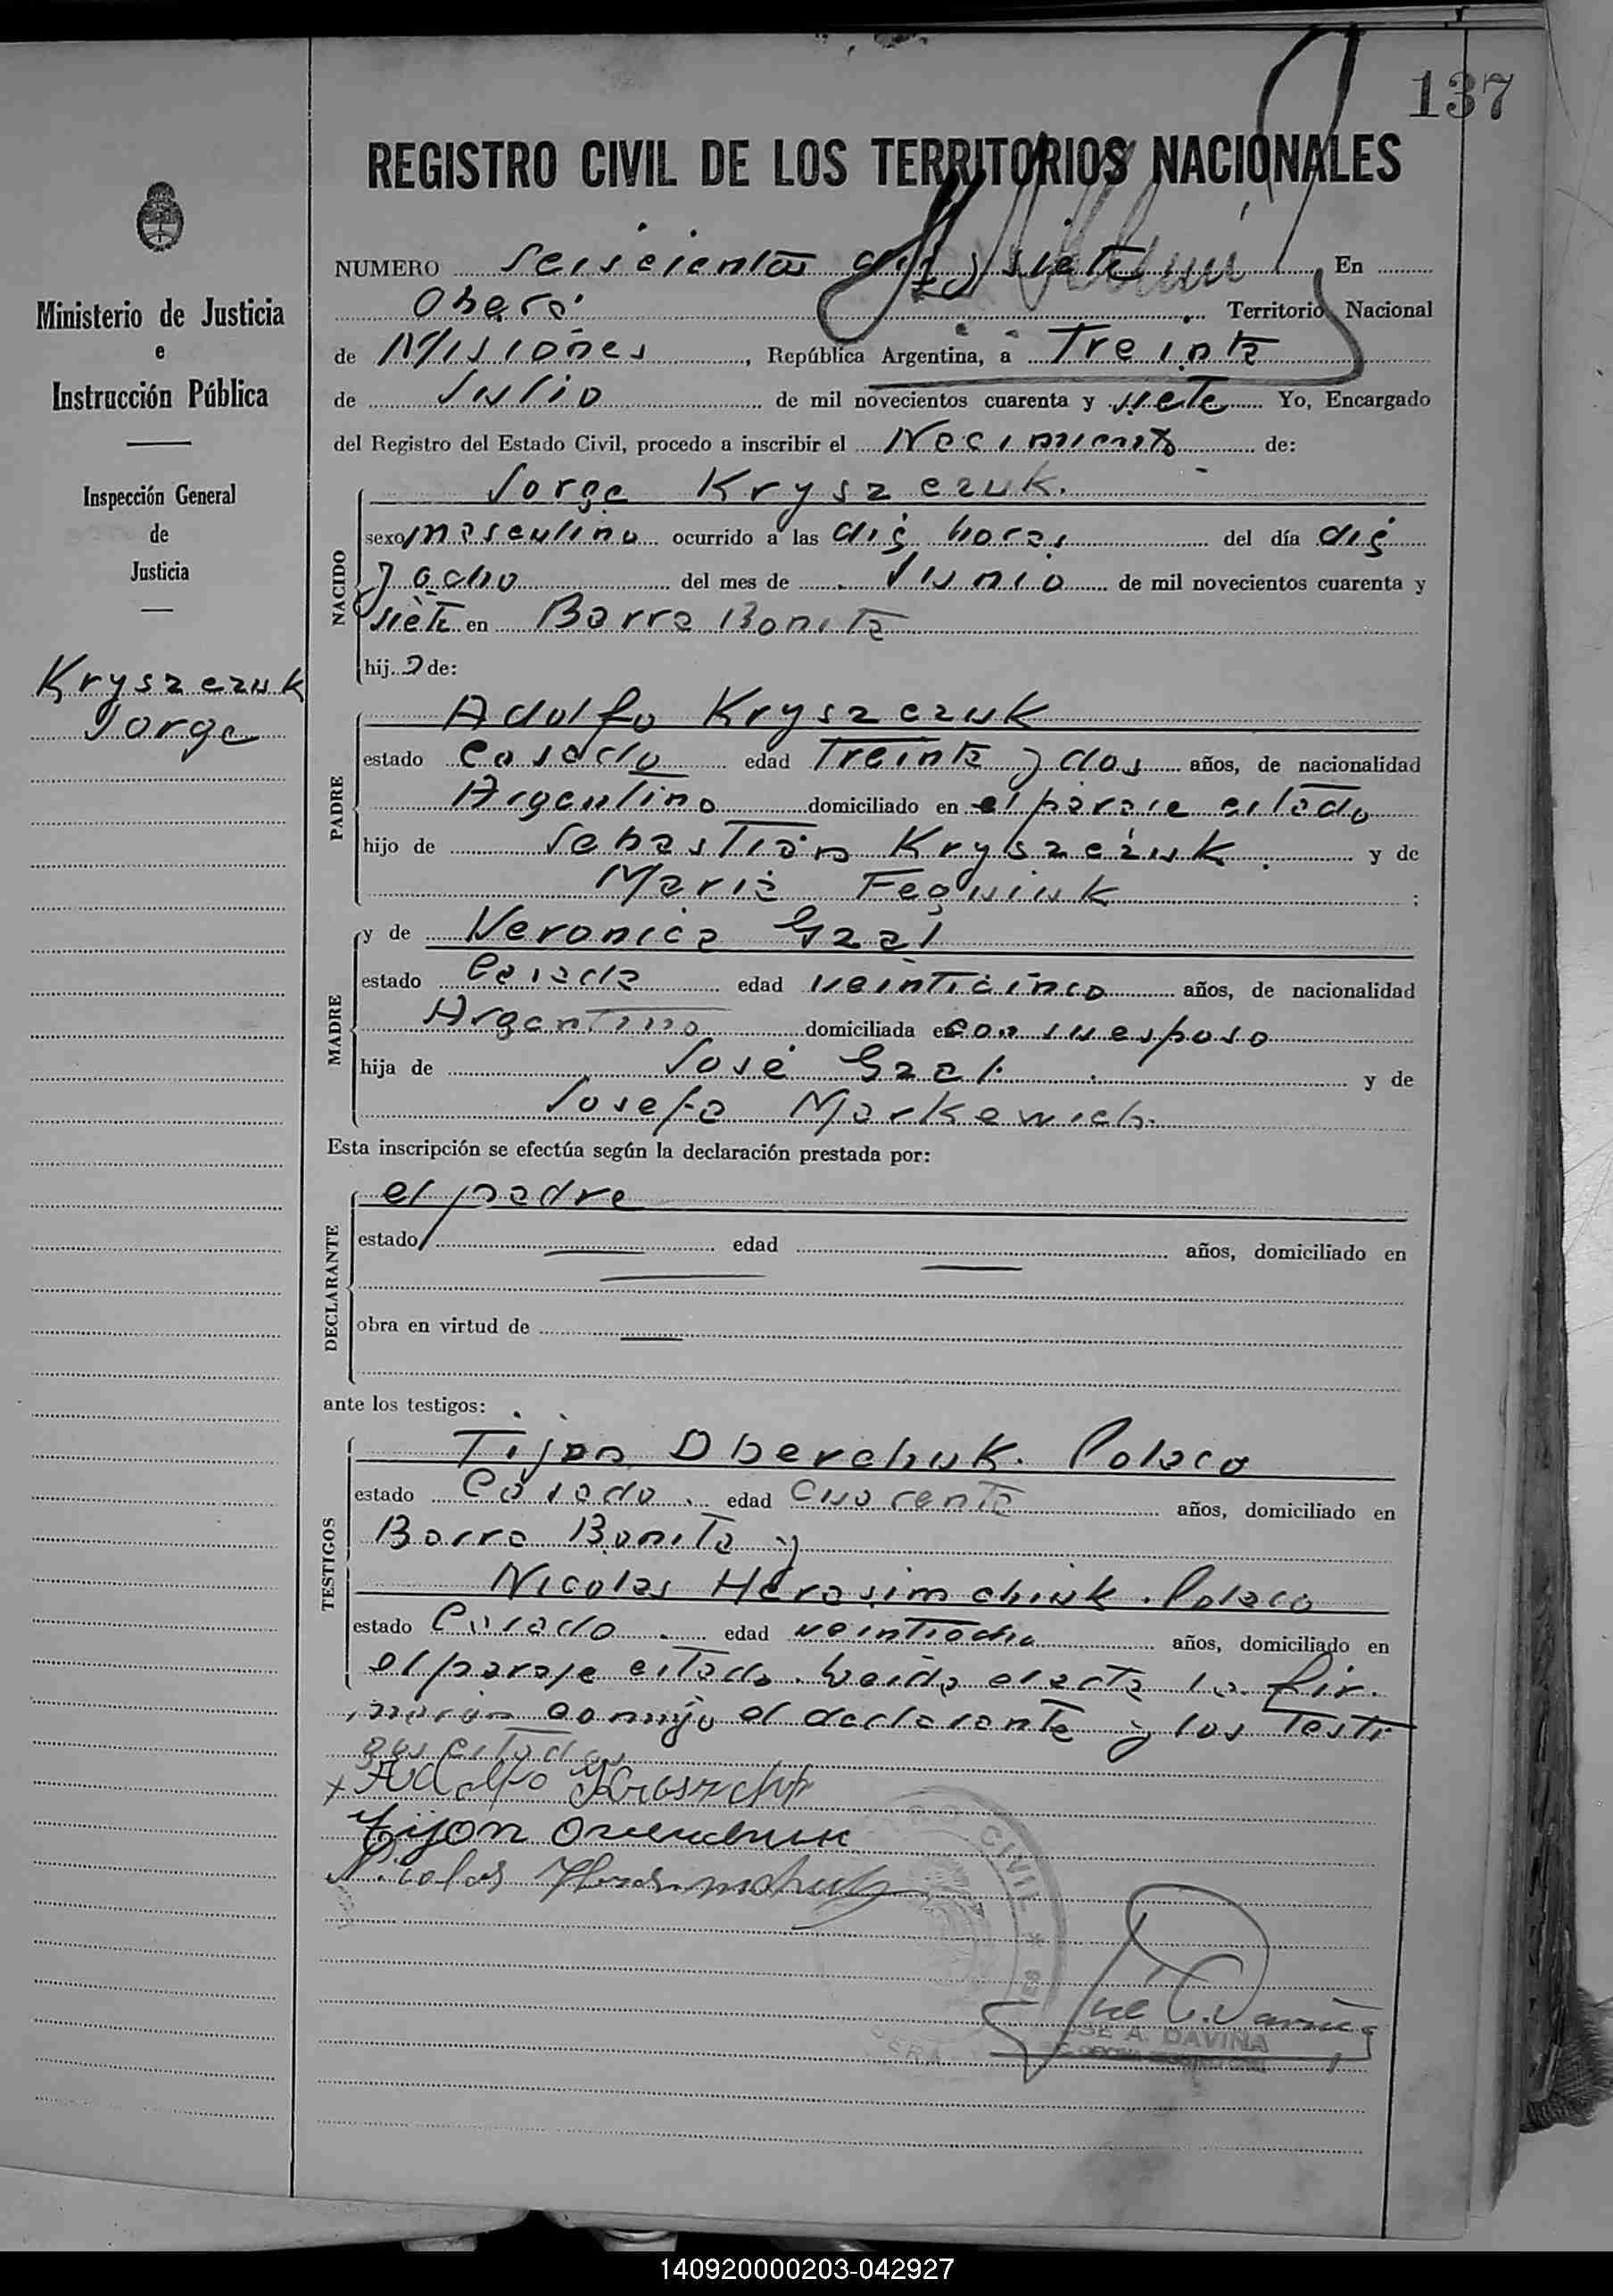 137
REGISTRO CIVIL DE LOS TERRITORIOS NACIONALES
Ministerio de Justicia
e
Instrucción Pública
Inspección General
de
Justicia
Kryszczuk
Jorge
NUMERO Seiscientos diez y siete En
Oberá Territorio Nacional
de Misiones, República Argentina, a Treinta
de Julio de mil novecientos cuarenta y siete Yo, Encargado
del Registro del Estado Civil, procedo a inscribir el Nacimiento de:
NACIDO
Jorge Kryszczuk.
sexo masculino ocurrido a las diez horas del día diez
y ocho del mes de Junio de mil novecientos cuarenta y
siete en Barra Bonita
hijo de:
PADRE
Adolfo Kryszczuk
estado Casado edad Treinta y dos años, de nacionalidad
Argentino domiciliado en el paraje citado
hijo de Sebastián Kryszczuk. y de
María ;
MADRE
y de Veronica Gzal
estado Casada edad veinticinco años, de nacionalidad
Argentina domiciliada en con su esposo
hija de José Gzal. y de
Josefa Markewich.
Esta inscripción se efectúa según la declaración prestada por:
DECLARANTE
el padre
estado edad años, domiciliado en
obra en virtud de
ante los testigos:
TESTIGOS
Tijon Oberchuk. Polaco
estado Casado. edad Cuarenta años, domiciliado en
Barra Bonita y
Nicolas Herasimchiuk. Polaco
estado Casado. edad veintiocho años, domiciliado en
el paraje citado. Leida el acta la fir.
maron conmigo el declarante y los testi
gos citados
x Adolfo
Tijon
Nicolas
CIVIL
JOSE A. DAVIÑA
140920000203-042927